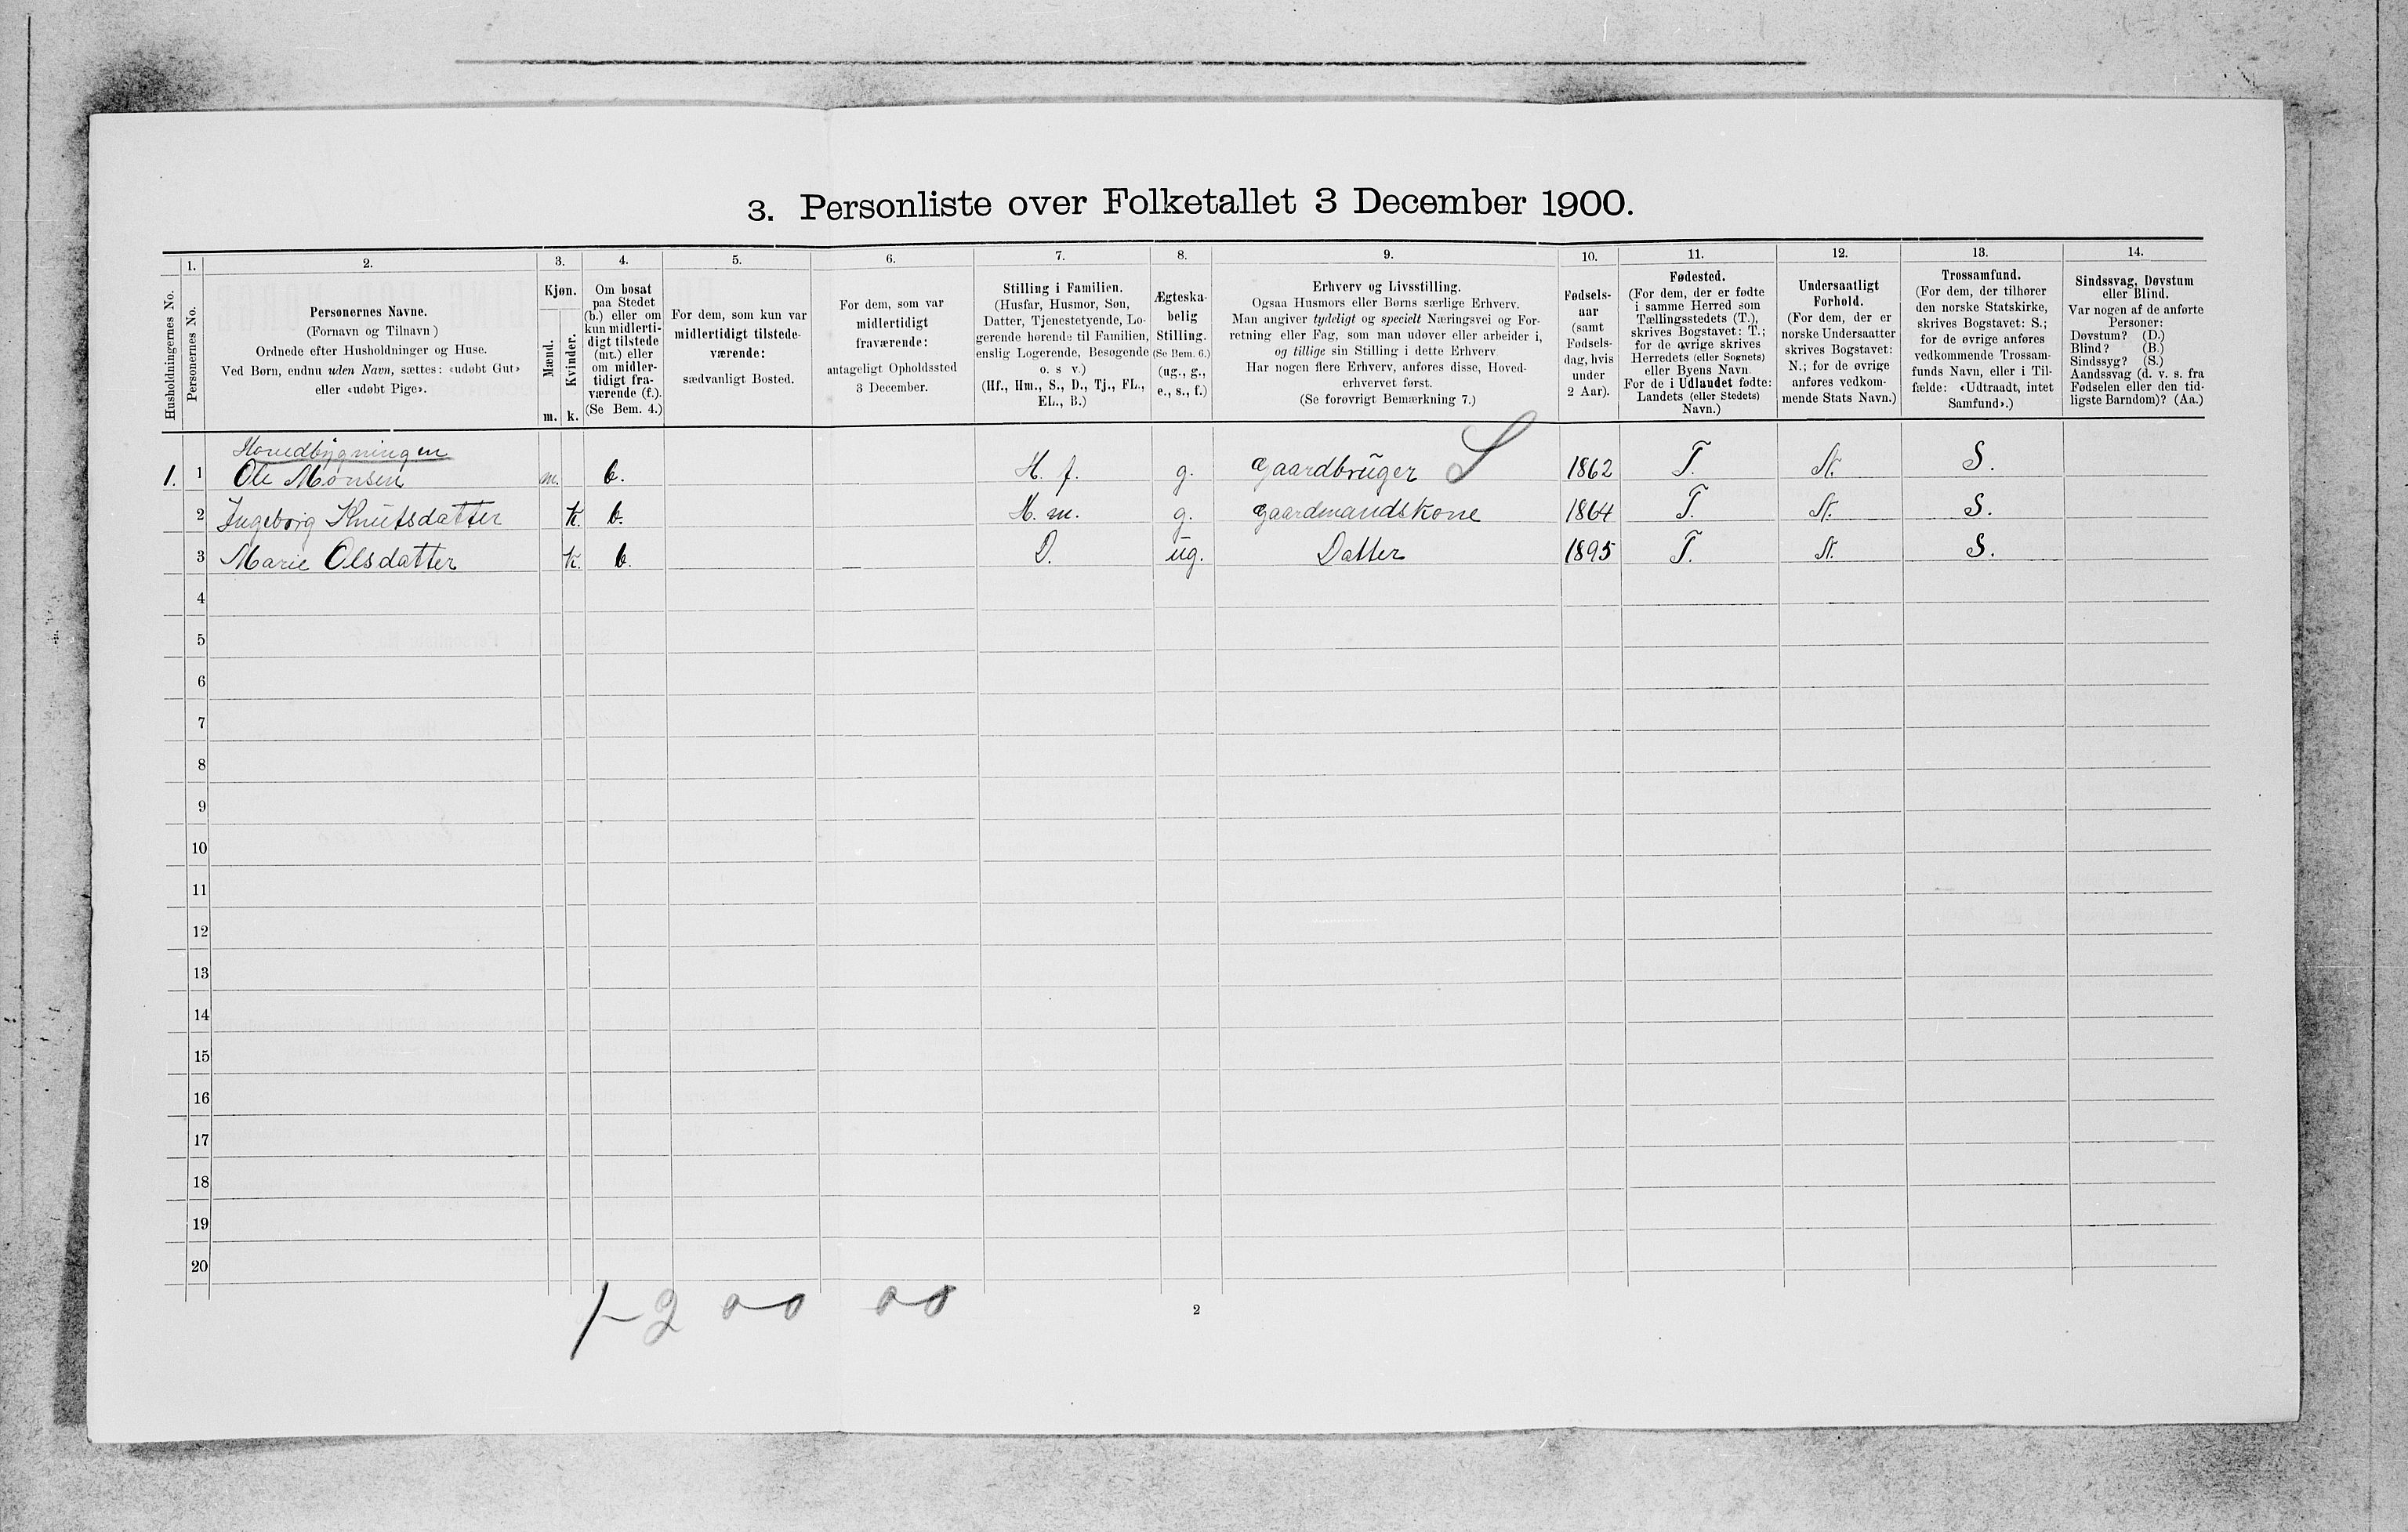 3. Personliste over Folketallet 3 December 1900.
Husholdningernes No.
1.
Personernes No.
2.
Personernes Navne.
(Fornavn og Tilnavn)
Ordnede efter Husholdninger og Huse.
Ved Børn, endnu uden Navn, sættes: «udøbt Gut»
eller «udøbt Pige».
3.
Kjøn.
Mænd.
m.
Kvinder.
k.
4.
Om bosat
paa Stedet
(b.) eller om
kun midlerti-
digt tilstede
(mt.) eller
om midler-
tidigt fra-
værende (f.).
(Se Bem. 4.)
5.
For dem, som kun var
midlertidigt tilstede-
værende:
sædvanligt Bosted.
6.
For dem, som var
midlertidigt
fraværende:
antageligt Opholdssted
3 December.
7.
Stilling i Familien.
(Husfar, Husmor, Søn,
Datter, Tjenestetyende, Lo-
gerende hørende til Familien,
enslig Logerende, Besøgende
o. s v.)
(Hf., Hm., S., D., Tj., FL.,
EL., B.)
8.
Ægteska-
belig
Stilling.
(Se Bem. 6.)
(ug., g.,
e., s., f.)
9.
Erhverv og Livsstilling.
Ogsaa Husmors eller Børns særlige Erhverv.
Man angiver tydeligt og specielt Næringsvei og For-
retning eller Fag, som man udøver eller arbeider i,
og tillige sin Stilling i dette Erhverv
Har nogen flere Erhverv, anføres disse, Hoved-
erhvervet først.
(Se forøvrigt Bemærkning 7.)
10.
Fødsels-
aar
(samt
Fødsels-
dag, hvis
under
2 Aar).
11.
Fødested.
(For dem, der er fødte
i samme Herred som
Tællingsstedets (T.),
skrives Bogstavet: T.;
for de øvrige skrives
Herredets (eller Sognets)
eller Byens Navn
For de i Udlandet fødte:
Landets (eller Stedets)
Navn.)
12.
Undersaatligt
Forhold.
(For dem, der er
norske Undersaatter
skrives Bogstavet:
N.; for de øvrige
anføres vedkom-
mende Stats Navn.)
13.
Trossamfund.
(For dem, der tilhører
den norske Statskirke,
skrives Bogstavet: S.;
for de øvrige anføres
vedkommende Trossam-
funds Navn, eller i Til-
fælde: «Udtraadt, intet
Samfund».)
14.
Sindssvag, Døvstum
eller Blind.
Var nogen af de anførte
Personer:
Døvstum? (D.)
Blind? (B.)
Sindssyg? (S.)
Aandssvag (d. v. s. fra
Fødselen eller den tid-
ligste Barndom)? (Aa.)
Hovedbygningen
1. 1 Ole Monsen m. b. H. f. g. Gaardbruger S 1862 T. N. S.
2 Ingeborg Knutsdatter k. b. H. m. g. Gaardmandskone 1864 T. N. S.
3 Marie Olsdatter k. b. D. ug. Datter 1895 T. N. S.
4
5
6
7
8
9
10
11
12
13
14
15
16
17
18
19
20
1-2 0-0 0-0
2